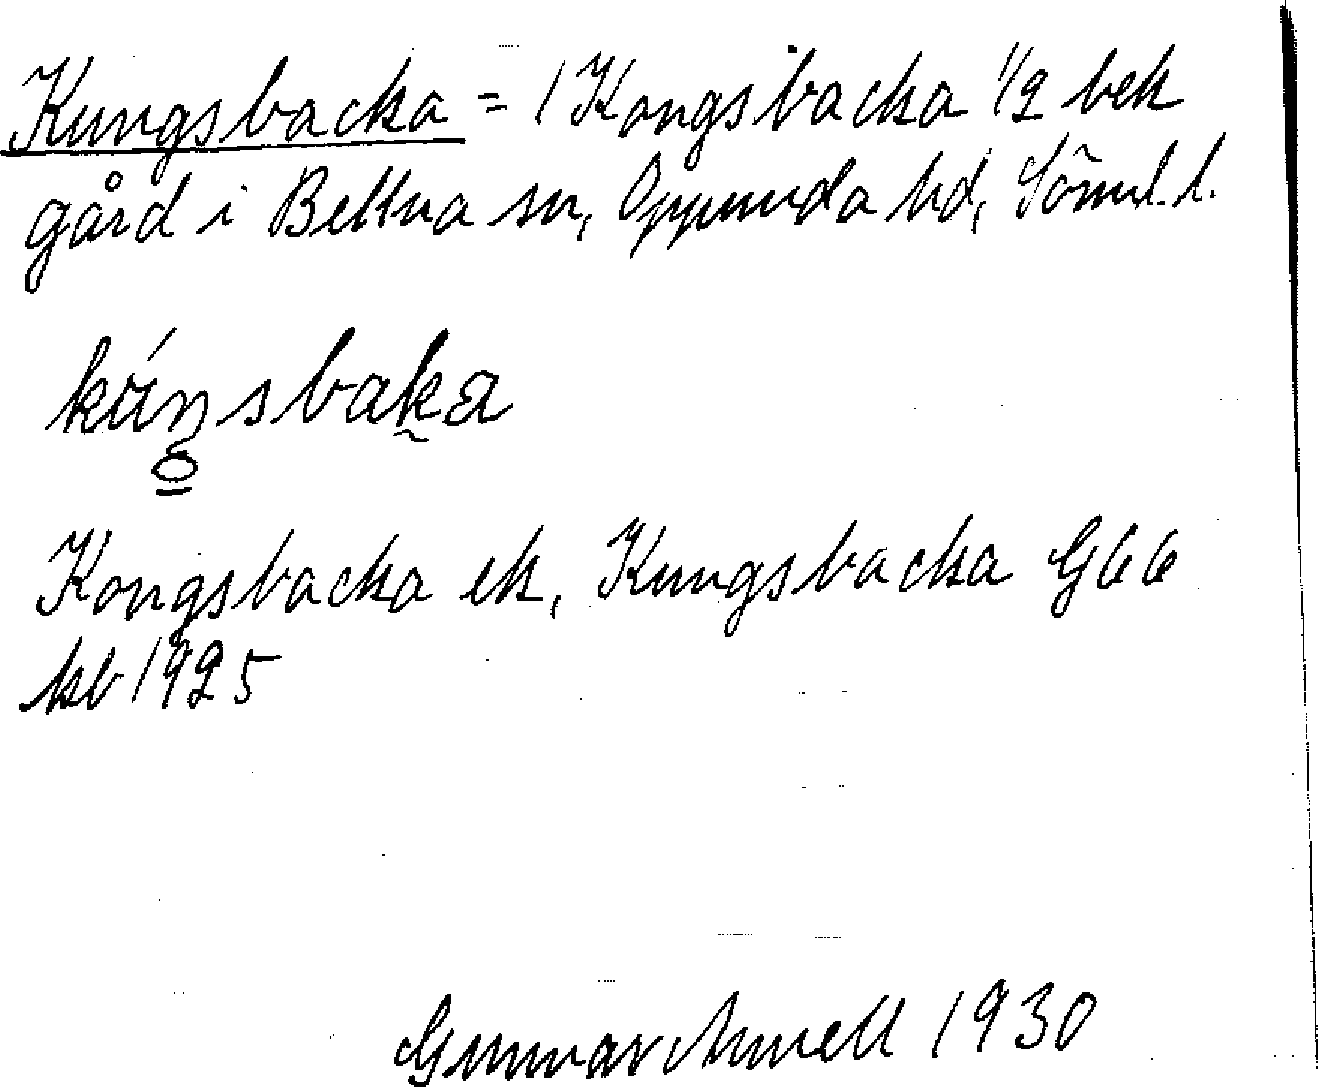 Kungsbacka = 1 Kongsbacka 1/2 bek
gård i Bettna sn, Oppunda hd, Söml. l.
kúŋsbaka
Kongsbacka ek, Kungsbacka G66
kb 1925
Gunnar 1930